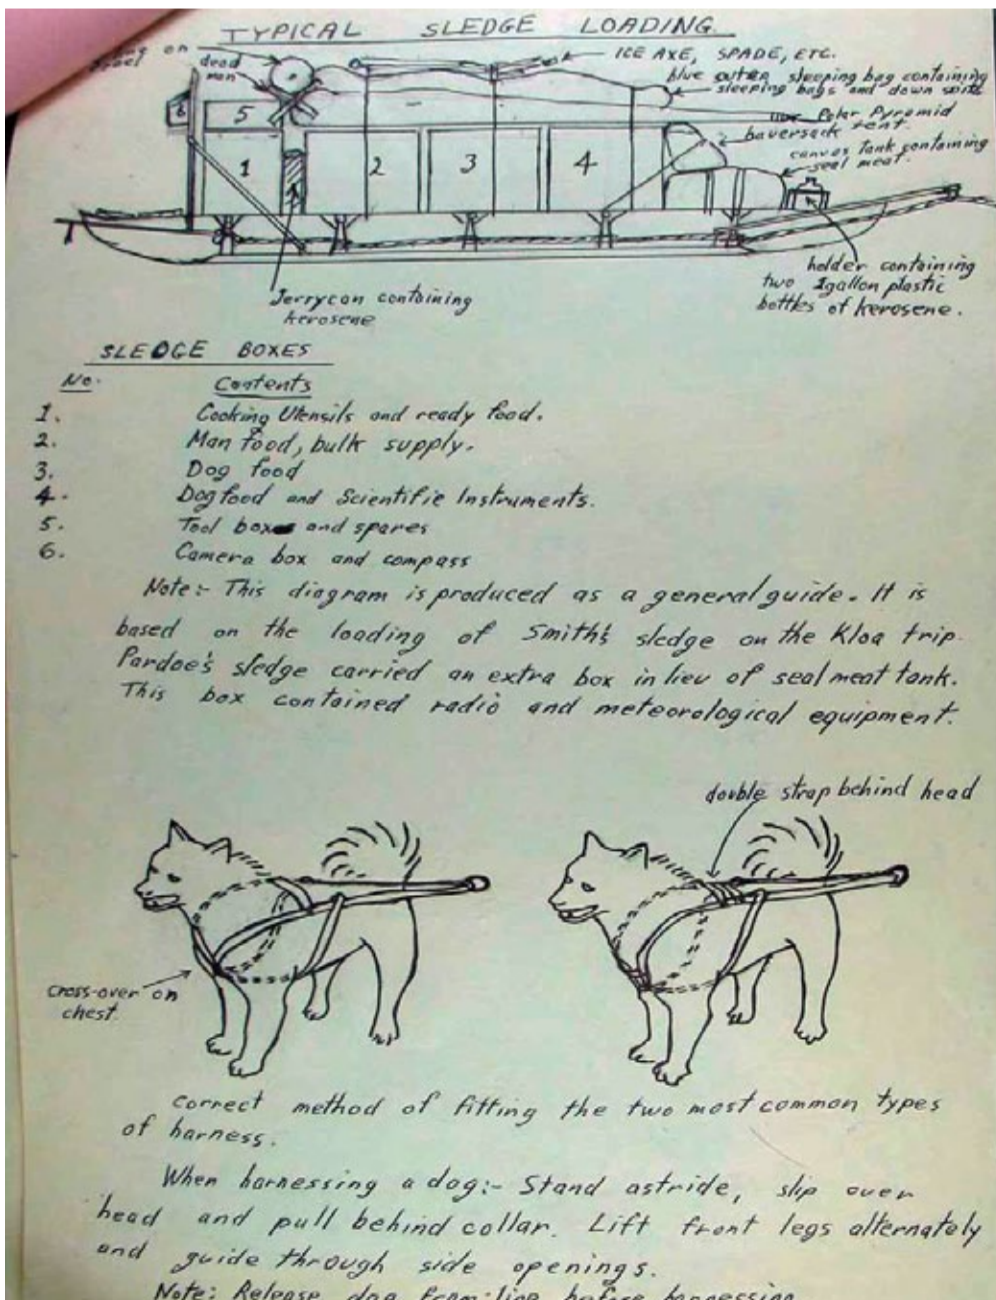 TYPICAL SLEDGE LOADING.
on
dead
man
ICE AXE, SPADE, ETC.
blue outer sleeping bag containing
sleeping bags and down suits
Polar Pyramid
tent.
haversack
canvas tank containing
seal meat
6
5
1
2
3
4
Jerrycan containing
kerosene
holder containing
two 1gallon plastic
bottles of kerosene.
SLEDGE BOXES
No. Contents
1. Cooking Utensils and ready food.
2. Man food, bulk supply.
3. Dog food
4. Dog food and Scientific Instruments.
5. Tool box and spares
6. Camera box and compass
Note:- This diagram is produced as a general guide. It is
based on the loading of Smith's sledge on the Kloa trip.
Pardoe's sledge carried an extra box in lieu of seal meat tank.
This box contained radio and meteorological equipment.
double strap behind head
cross-over on
chest.
correct method of fitting the two most common types
of harness.
When harnessing a dog:- Stand astride, slip over
head and pull behind collar. Lift front legs alternately
and guide through side openings.
Note: Release dog from line before harnessing